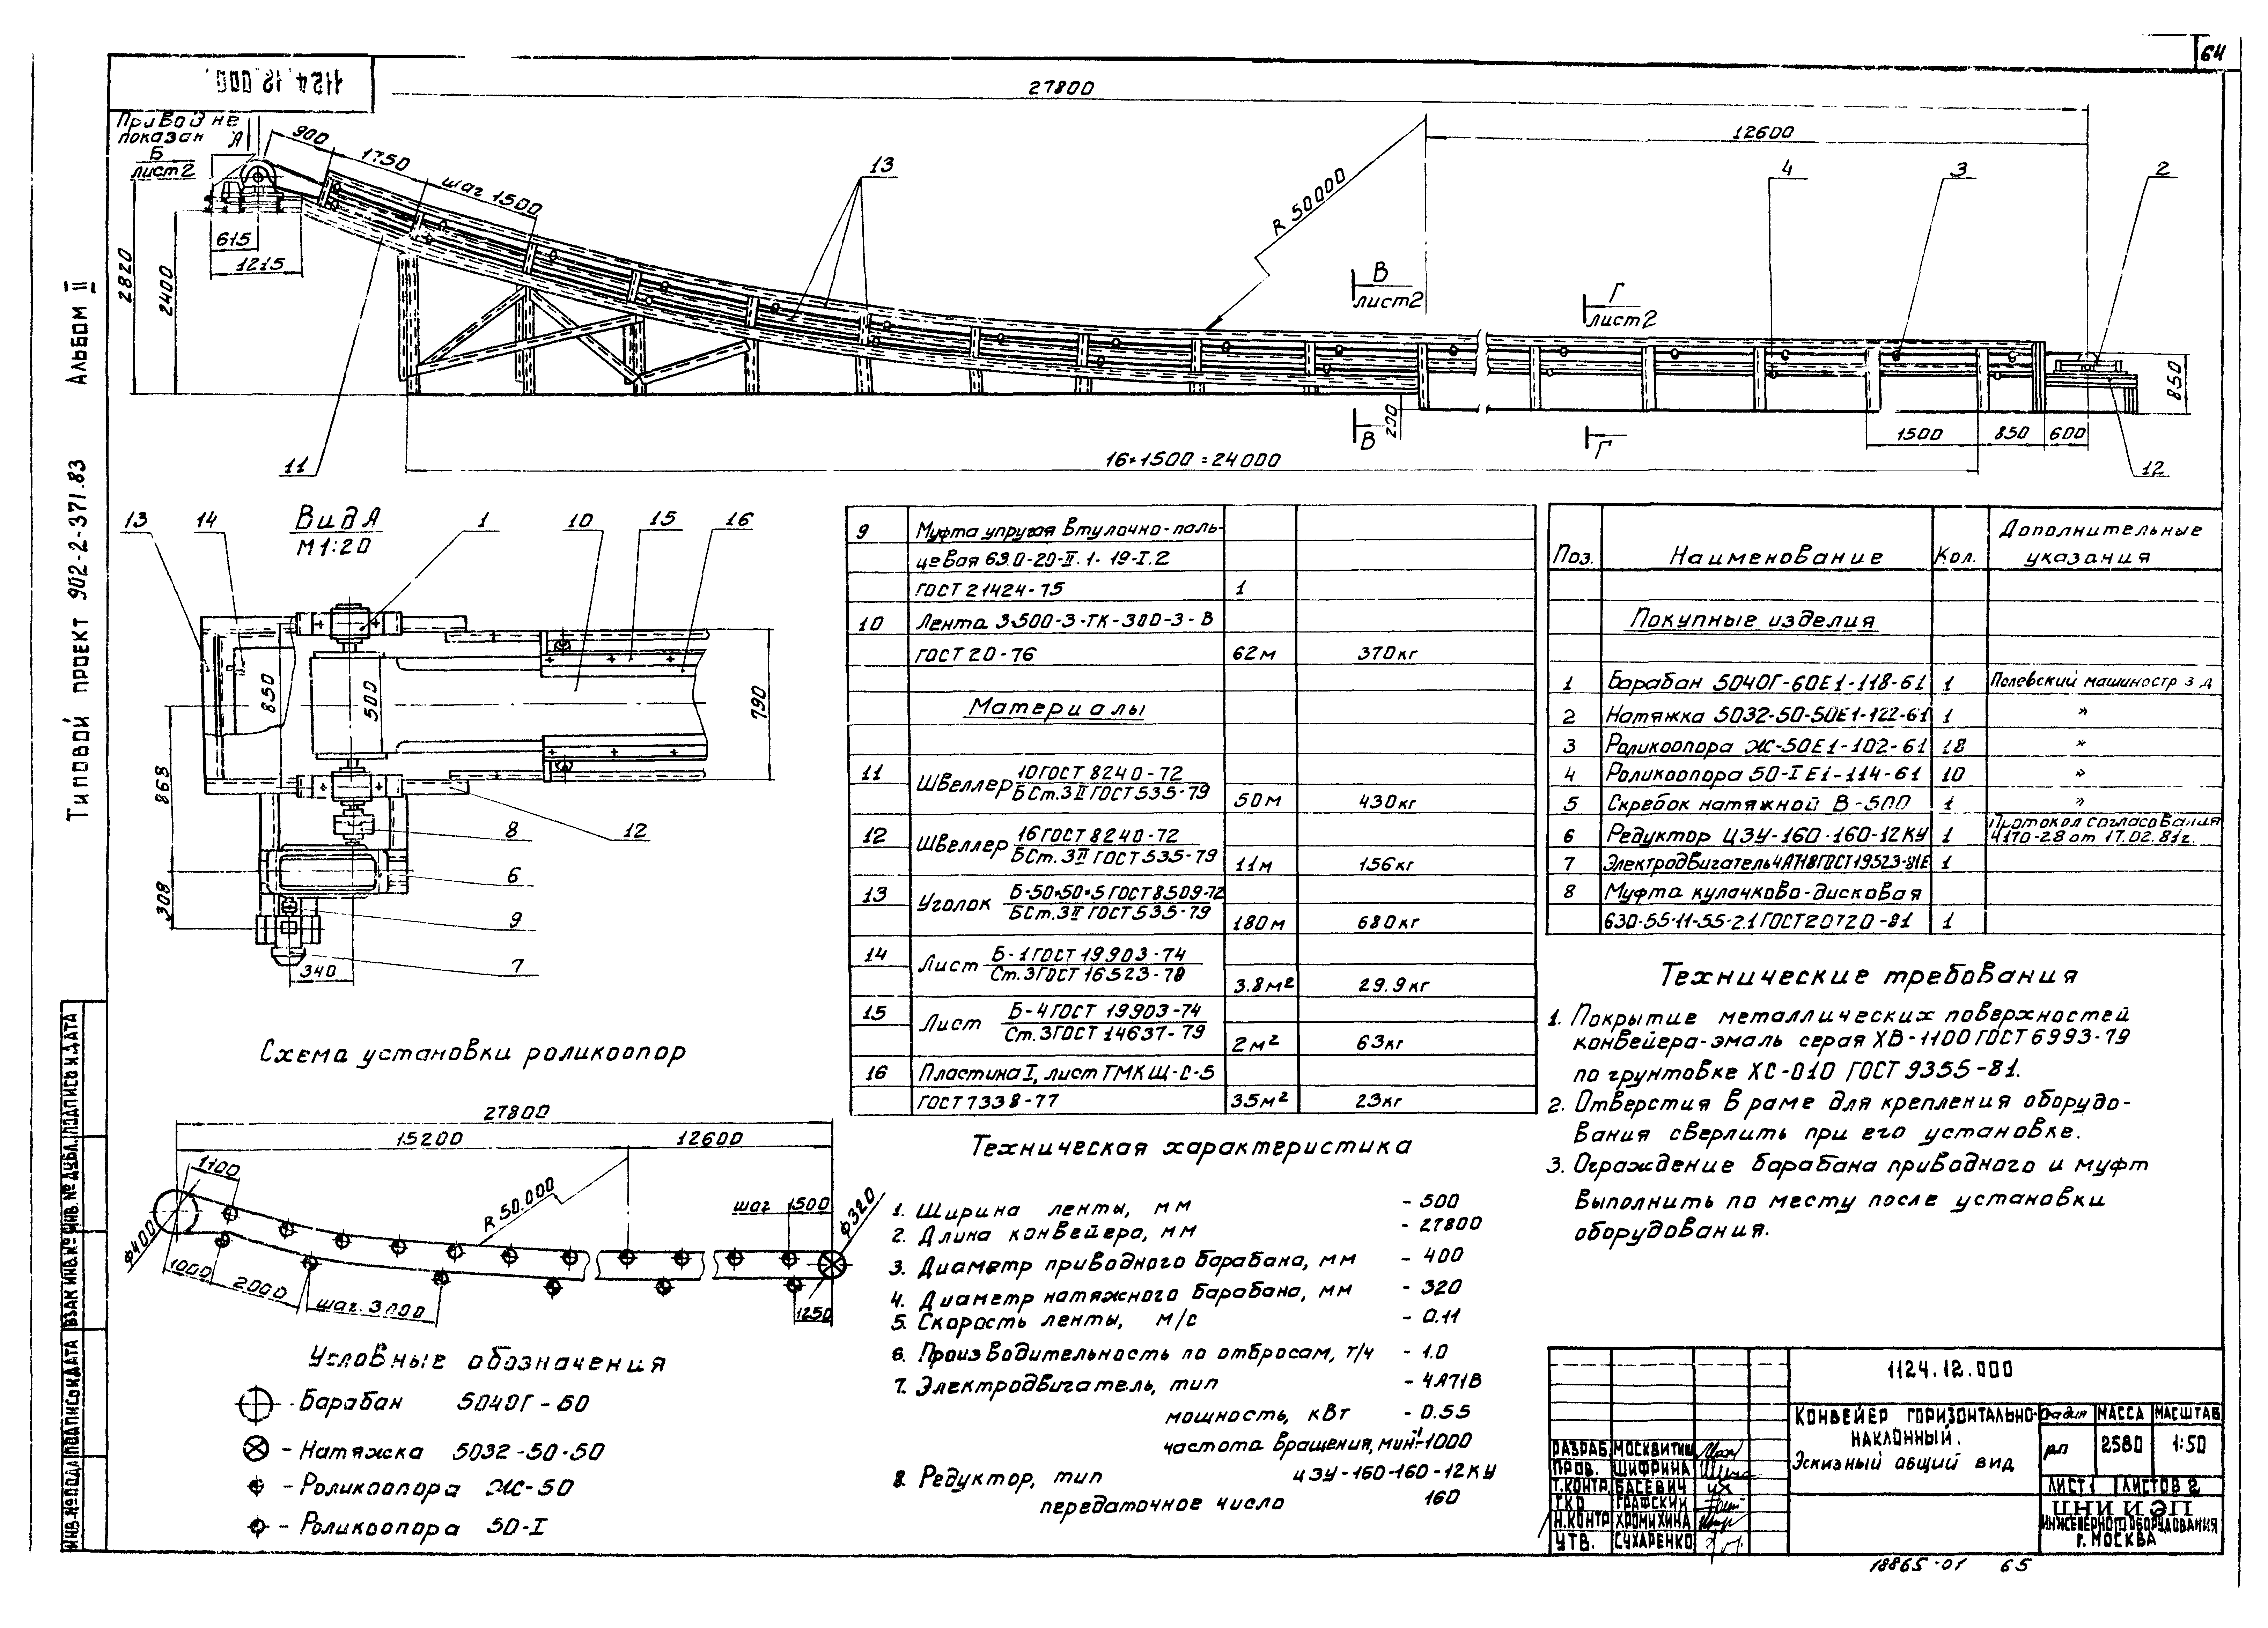 64
1124.12.000.
27800
Привод не
показан
А
Б
лист 2
900
1750
шаг 1500
13
R 50000
12600
4
3
2
615
1215
2820
2400
В
лист2
Г
лист2
850
200
В
Г
1500
850
600
11
16×1500=24000
12
Альбом II
Типовой проект 902-2-371.83
Вид А
М 1:20
13
14
1
10
15
16
850
500
790
868
308
8
12
6
9
7
340
9 Муфта упругая втулочно-паль-
цевая 63.0-20-II.1-19-I.2
ГОСТ 21424-75 1
10 Лента 3-500-3-ТК-300-3-В
ГОСТ 20-76 62м 370кг
Материалы
11 Швеллер 10 ГОСТ 8240-72
БСт.3II ГОСТ 535-79 50м 430кг
12 Швеллер 16 ГОСТ 8240-72
БСт.3II ГОСТ 535-79 11м 156кг
13 Уголок Б-50×50×5 ГОСТ 8509-72
БСт.3II ГОСТ 535-79 180м 680кг
14 Лист Б-1 ГОСТ 19903-74
Ст.3 ГОСТ 16523-70 3.8м² 29.9кг
15 Лист Б-4 ГОСТ 19903-74
Ст.3 ГОСТ 14637-79 2м² 63кг
16 Пластина I, лист ТМКЩ-С-5
ГОСТ 7338-77 3.5м² 23кг
Поз. Наименование Кол. Дополнительные
указания
Покупные изделия
1 Барабан 5040Г-60Е1-118-61 1 Полевский машиностр з-д
2 Натяжка 5032-50-50Е1-122-61 1 "
3 Роликоопора Ж-50Е1-102-61 18 "
4 Роликоопора 50-I Е1-114-61 10 "
5 Скребок натяжной В-500 1 "
6 Редуктор ЦЗУ-160-160-12КУ 1 Протокол согласования
4170-28 от 17.02.81г.
7 Электродвигатель ГОСТ 19523-81Е 1
8 Муфта кулачково-дисковая
630-55-11-55-2.1 ГОСТ 20720-81 1
Технические требования
1. Покрытие металлических поверхностей
конвейера-эмаль серая ХВ-1100 ГОСТ 6993-79
по грунтовке ХС-010 ГОСТ 9355-81.
2. Отверстия в раме для крепления оборудо-
вания сверлить при его установке.
3. Ограждение барабана приводного и муфт
выполнить по месту после установки
оборудования.
Схема установки роликоопор
27800
15200
12600
1100
R 50.000
шаг 1500
ф320
ф400
1000
2000
шаг 3000
1250
Условные обозначения
- Барабан 5040Г-60
- Натяжка 5032-50-50
- Роликоопора Ж-50
- Роликоопора 50-I
Техническая характеристика
1. Ширина ленты, мм - 500
2. Длина конвейера, мм - 27800
3. Диаметр приводного барабана, мм - 400
4. Диаметр натяжного барабана, мм - 320
5. Скорость ленты, м/с - 0.11
6. Производительность по отбросам, т/ч - 1.0
7. Электродвигатель, тип - 4А71В
мощность, кВт - 0.55
частота вращения, мин⁻¹ - 1000
8. Редуктор, тип ЦЗУ-160-160-12КУ
передаточное число 160
1124.12.000
Конвейер горизонтально-
наклонный.
Эскизный общий вид
Стадия Масса Масштаб
рп 2580 1:50
Лист 1 Листов 2
ЦНИИЭП
инженерного оборудования
г. Москва
Разраб. Москвитин
Пров. Шифрина
Т.контр. Басевич
ГКО Графский
Н.контр Хромихина
Утв. Сухаренко
18865-01 65
Инв.№ подл. Подпись и дата Взам инв.№ Инв.№ дубл. Подпись и дата